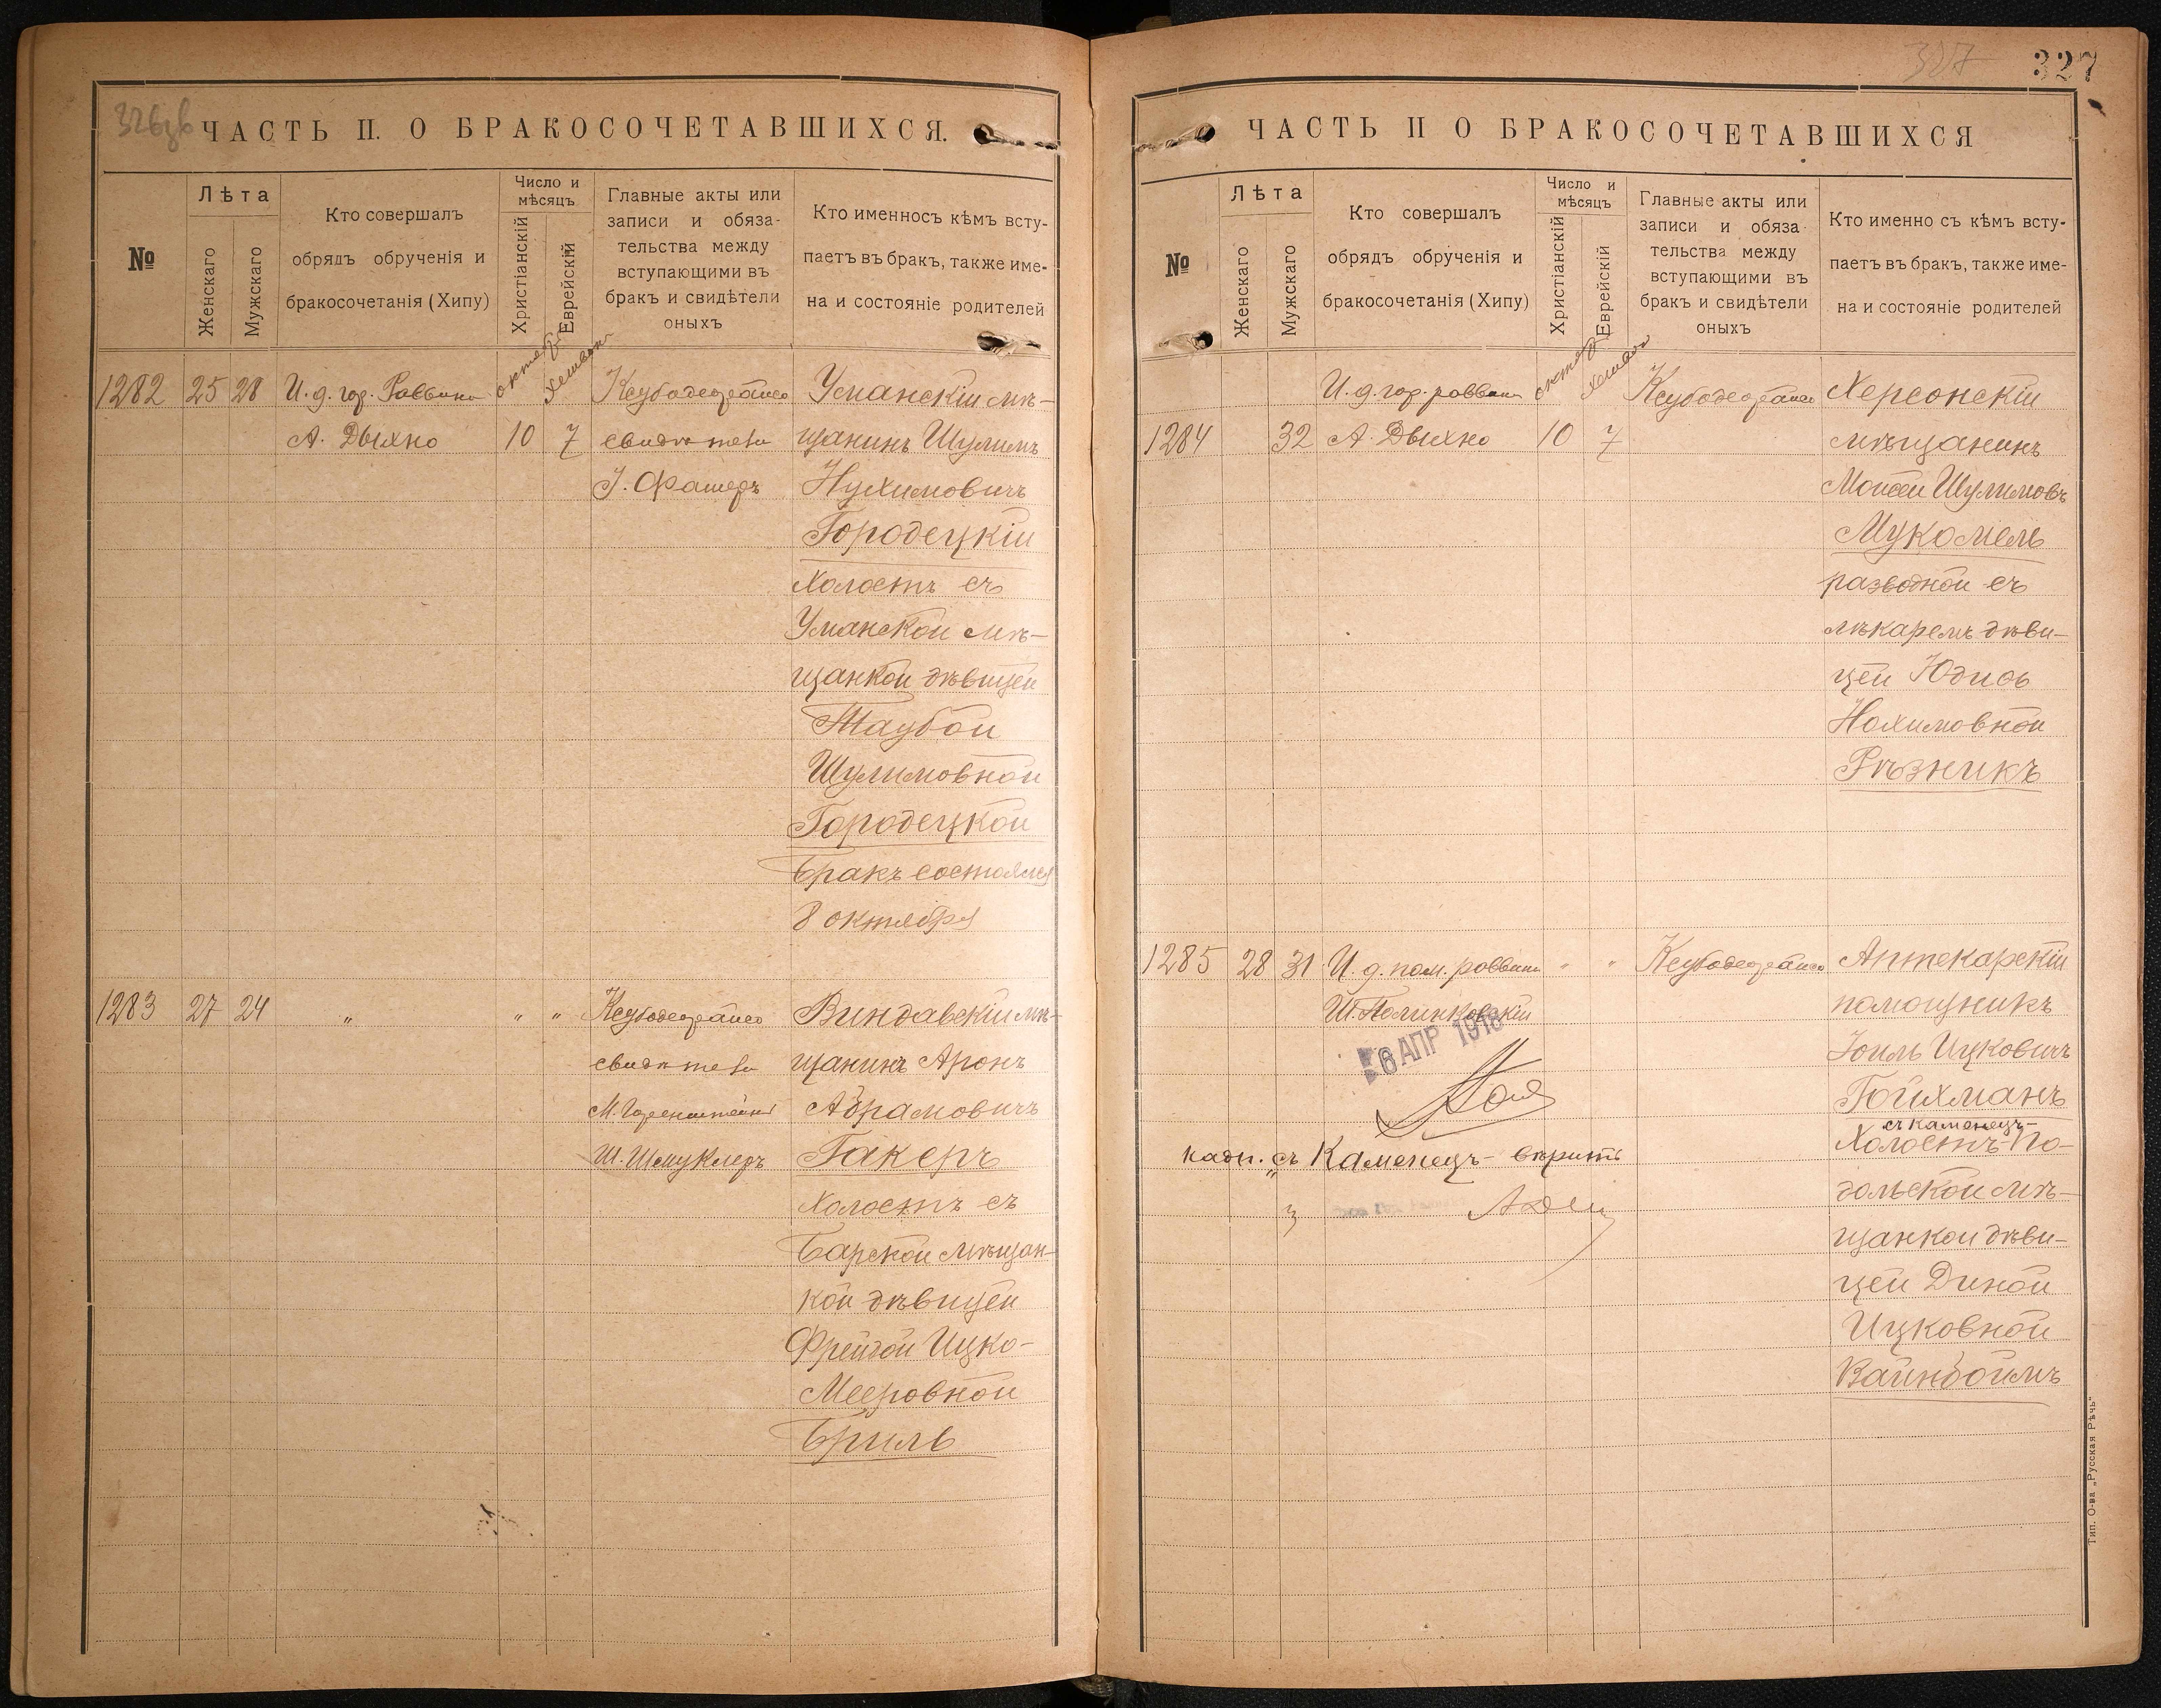 326 зв
ЧАСТЬ II. О БРАКОСОЧЕТАВШИХСЯ.
№
Лѣта
Женскаго
Мужскаго
Кто совершалъ
обрядъ обрученія и
бракосочетанія (Хипу)
Число и
мѣсяцъ
Христіанскій
Еврейскій
Главные акты или
записи и обяза-
тельства между
вступающими въ
бракъ и свидѣтели
оныхъ
Кто именносъ кѣмъ всту-
паетъ въ бракъ, также име-
на и состояніе родителей
1282 25 28 И. д. гор. Раввина
А. Дыхно 10 7
свидѣтели
Уманскій мѣ-
щанинъ Шулимъ
Нухимовичъ
Городецкій
Холостъ съ
Уманской мѣ-
щанкой дѣвицей
Таубой
Шулимовной
Городецкой
Бракъ состоялся
8 октября
1283 27 24 " " "
свидѣтели
Ш. Шмуклеръ
Виндавскій мѣ-
щанинъ Аронъ
Абрамовичъ
Гакеръ
Холостъ съ
Барской мѣщан-
кой дѣвицей
Фрейдой Ицко-
Мееровной
Бриль
327
327
ЧАСТЬ II О БРАКОСОЧЕТАВШИХСЯ
№
Лѣта
Женскаго
Мужскаго
Кто совершалъ
обрядъ обрученія и
бракосочетанія (Хипу)
Число и
мѣсяцъ
Христіанскій
Еврейскій
Главные акты или
записи и обяза-
тельства между
вступающими въ
бракъ и свидѣтели
оныхъ
Кто именно съ кѣмъ всту-
паетъ въ бракъ, также име-
на и состояніе родителей
И. д. гор. раввина
1284 32 А. Дыхно 10 7
Херсонскій
мѣщанинъ
Моисей Шулимовъ
Мукомель
разводной съ
лѣкаремъ дѣви-
цей Юдисъ
Нохимовной
Рѣзникъ
1285 28 31 И. д. пом. раввина " "
Ш. Полинковскій
6 АПР 1918
надп. „съ Каменецъ- вѣрить
Аптекарскій
помощникъ
Іоиль Ицковичъ
Гойхманъ
съ Каменецъ-
Холостъ-По-
дольской мѣ-
щанкой дѣви-
цей Диной
Ицковной
Вайнбоймъ
Тип. О-ва „Русская Рѣчь"